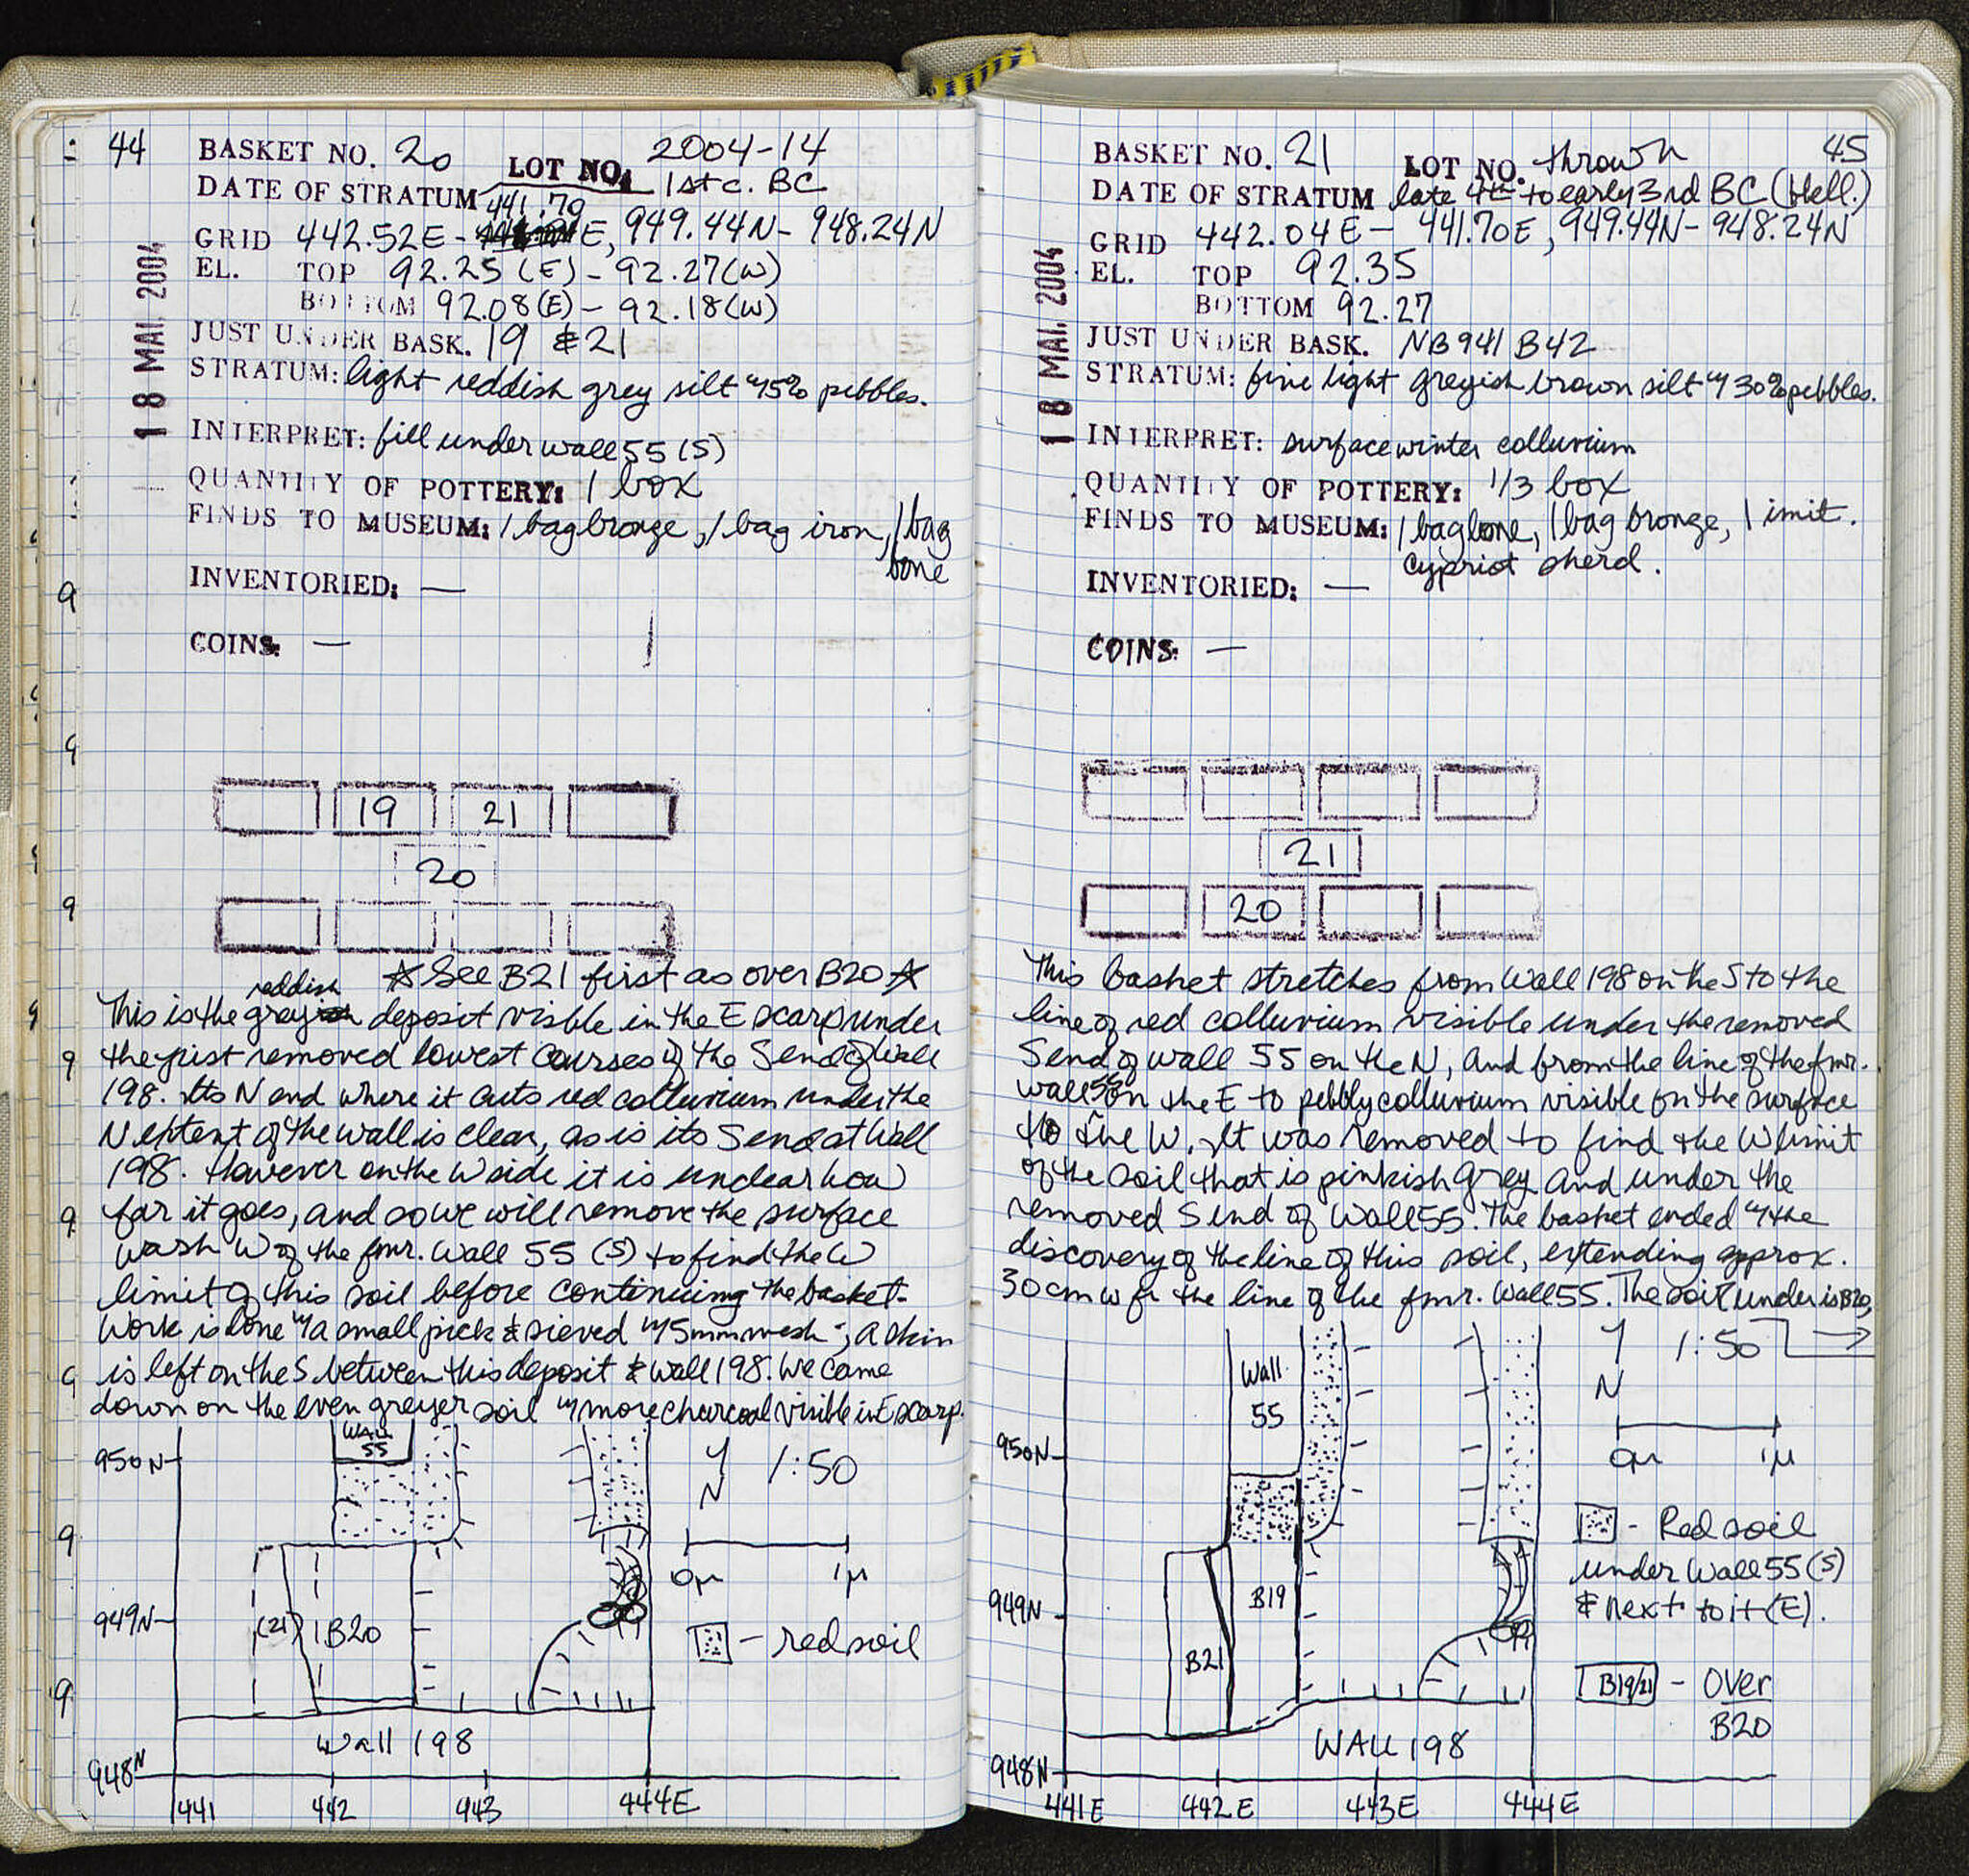 44
BASKET NO. 20 LOT NO. 2004-14
DATE OF STRATUM 1st c. BC
441.79
GRID 442.52E - E, 949.44N - 948.24N
EL. TOP 92.25 (E) - 92.27 (W)
BOTTOM 92.08 (E) - 92.18 (W)
JUST UNDER BASK. 19 & 21
STRATUM: light reddish grey silt w/ 15% pebbles.
INTERPRET: fill under wall 55 (S)
QUANTITY OF POTTERY: 1 box
FINDS TO MUSEUM: 1 bag bronze, 1 bag iron, 1 bag
bone
INVENTORIED: —
COINS: —
18 MAI. 2004
19 21
20
☆ See B21 first as over B20 ☆
reddish
This is the grey deposit visible in the E scarp under
the just removed lowest courses of the S end of Wall
198. Its N end where it cuts red colluvium under the
N extent of the wall is clear, as is its S end at Wall
198. However on the W side it is unclear how
far it goes, and so we will remove the surface
wash W of the fmr. Wall 55 (S) to find the W
limit of this soil before continuing the basket.
Work is done w/ a small pick & sieved w/ 5mm mesh; a skin
is left on the S between this deposit & Wall 198. We came
down on the even greyer soil w/ more charcoal visible in E scarp.
WALL
55
950N
949N
948N
(21) B20
Wall 198
441 442 943 444E
N 1:50
0μ 1μ
- red soil
45
BASKET NO. 21 LOT NO. thrown
DATE OF STRATUM late 4th to early 3rd BC (Hell.)
GRID 442.04E - 441.70E, 949.44N - 948.24N
EL. TOP 92.35
BOTTOM 92.27
JUST UNDER BASK. NB941 B42
STRATUM: fine light greyish brown silt w/ 30% pebbles.
INTERPRET: surface winter colluvium
QUANTITY OF POTTERY: 1/3 box
FINDS TO MUSEUM: 1 bag bone, 1 bag bronze, 1 imit.
cypriot sherd.
INVENTORIED: —
COINS: —
18 MAI. 2004
21
20
This basket stretches from Wall 198 on the S to the
line of red colluvium visible under the removed
S end of Wall 55 on the N, and from the line of the fmr.
wall 55 on the E to pebbly colluvium visible on the surface
to the W. It was removed to find the W limit
of the soil that is pinkish grey and under the
removed S end of Wall 55. The basket ended w/ the
discovery of the line of this soil, extending approx.
30 cm W fr the line of the fmr. Wall 55. The soil under is B20,
Wall
55
950N
949N
948N
B19
B21
WALL 198
441E 442E 443E 444E
N 1:50
0μ 1μ
- Red soil
under Wall 55 (S)
& next to it (E).
B19/21 - Over
B20